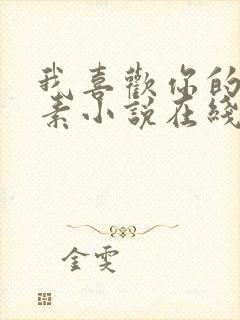 我喜歡你的
素小說在綫
金雯